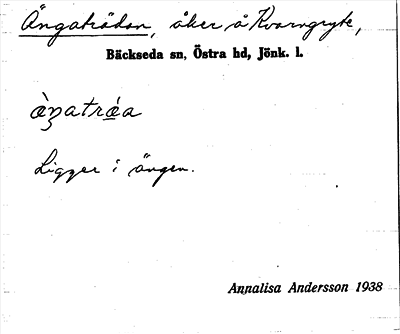 Ängaträdan, åker å Kvarngryte,
Bäckseda sn, Östra hd, Jönk. l.
ä̀ŋatrá̤a
Ligger i ängen.
Annalisa Andersson 1938